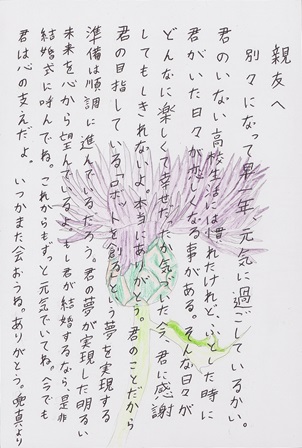 親友へ
別々になって早一年、元気に過ごしているかい。
君のいない高校生活には慣れたけれど、ふとした時に
君がいた日々が恋しくなる事がある。そんな日々が
どんなに楽しくて幸せだったか気づいた今、君に感謝
してもしきれないよ。本当にありがとう。君のことだから
君の目指している「ロボットを創る」という夢を実現する
準備は順調に進んでいるだろう。君の夢が実現した明るい
未来を心から望んでいるよ。もし君が結婚するなら、是非
結婚式に呼んでね。これからもずっと元気でいてね。今でも
君は心の支えだよ。いつかまた会おうね。ありがとう。